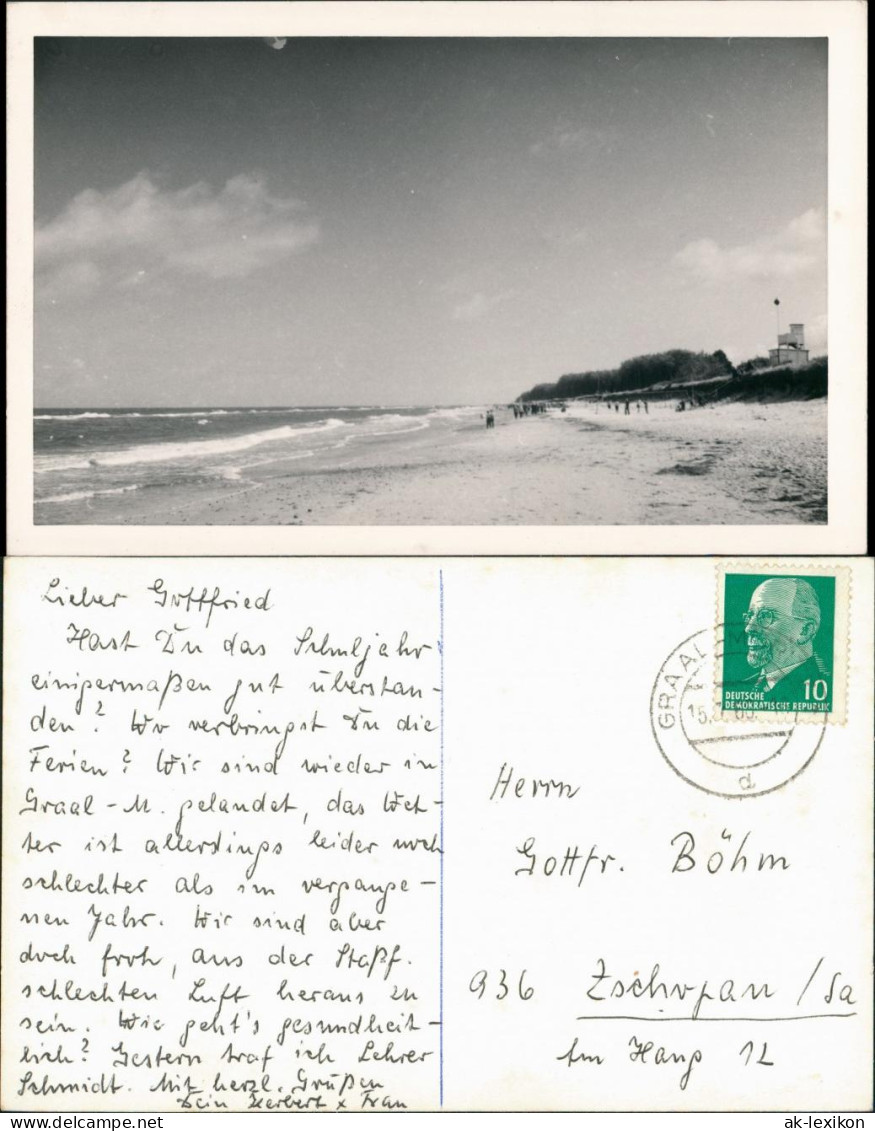 Lieber Gottfried
Hast Du das Schuljahr
einigermaßen gut überstan-
den? Wo verbringst Du die
Ferien? Wir sind wieder in
Graal-M. gelandet, das Wet-
ter ist allerdings leider noch
schlechter als im vergange-
nen Jahr. Wir sind aber
doch froh, aus der Staßf.
schlechten Luft heraus zu
sein. Wie geht's gesundheit-
lich? Gestern traf ich Lehrer
Schmidt. Mit herzl. Grüßen
Dein Herbert & Frau
10
DEUTSCHE
DEMOKRATISCHE REPUBLIK
GRAAL-M
15.
d
Herrn
Gottfr. Böhm
936 Zschopau/Sa
Am Hang 12
www.delcampe.net
ak-lexikon